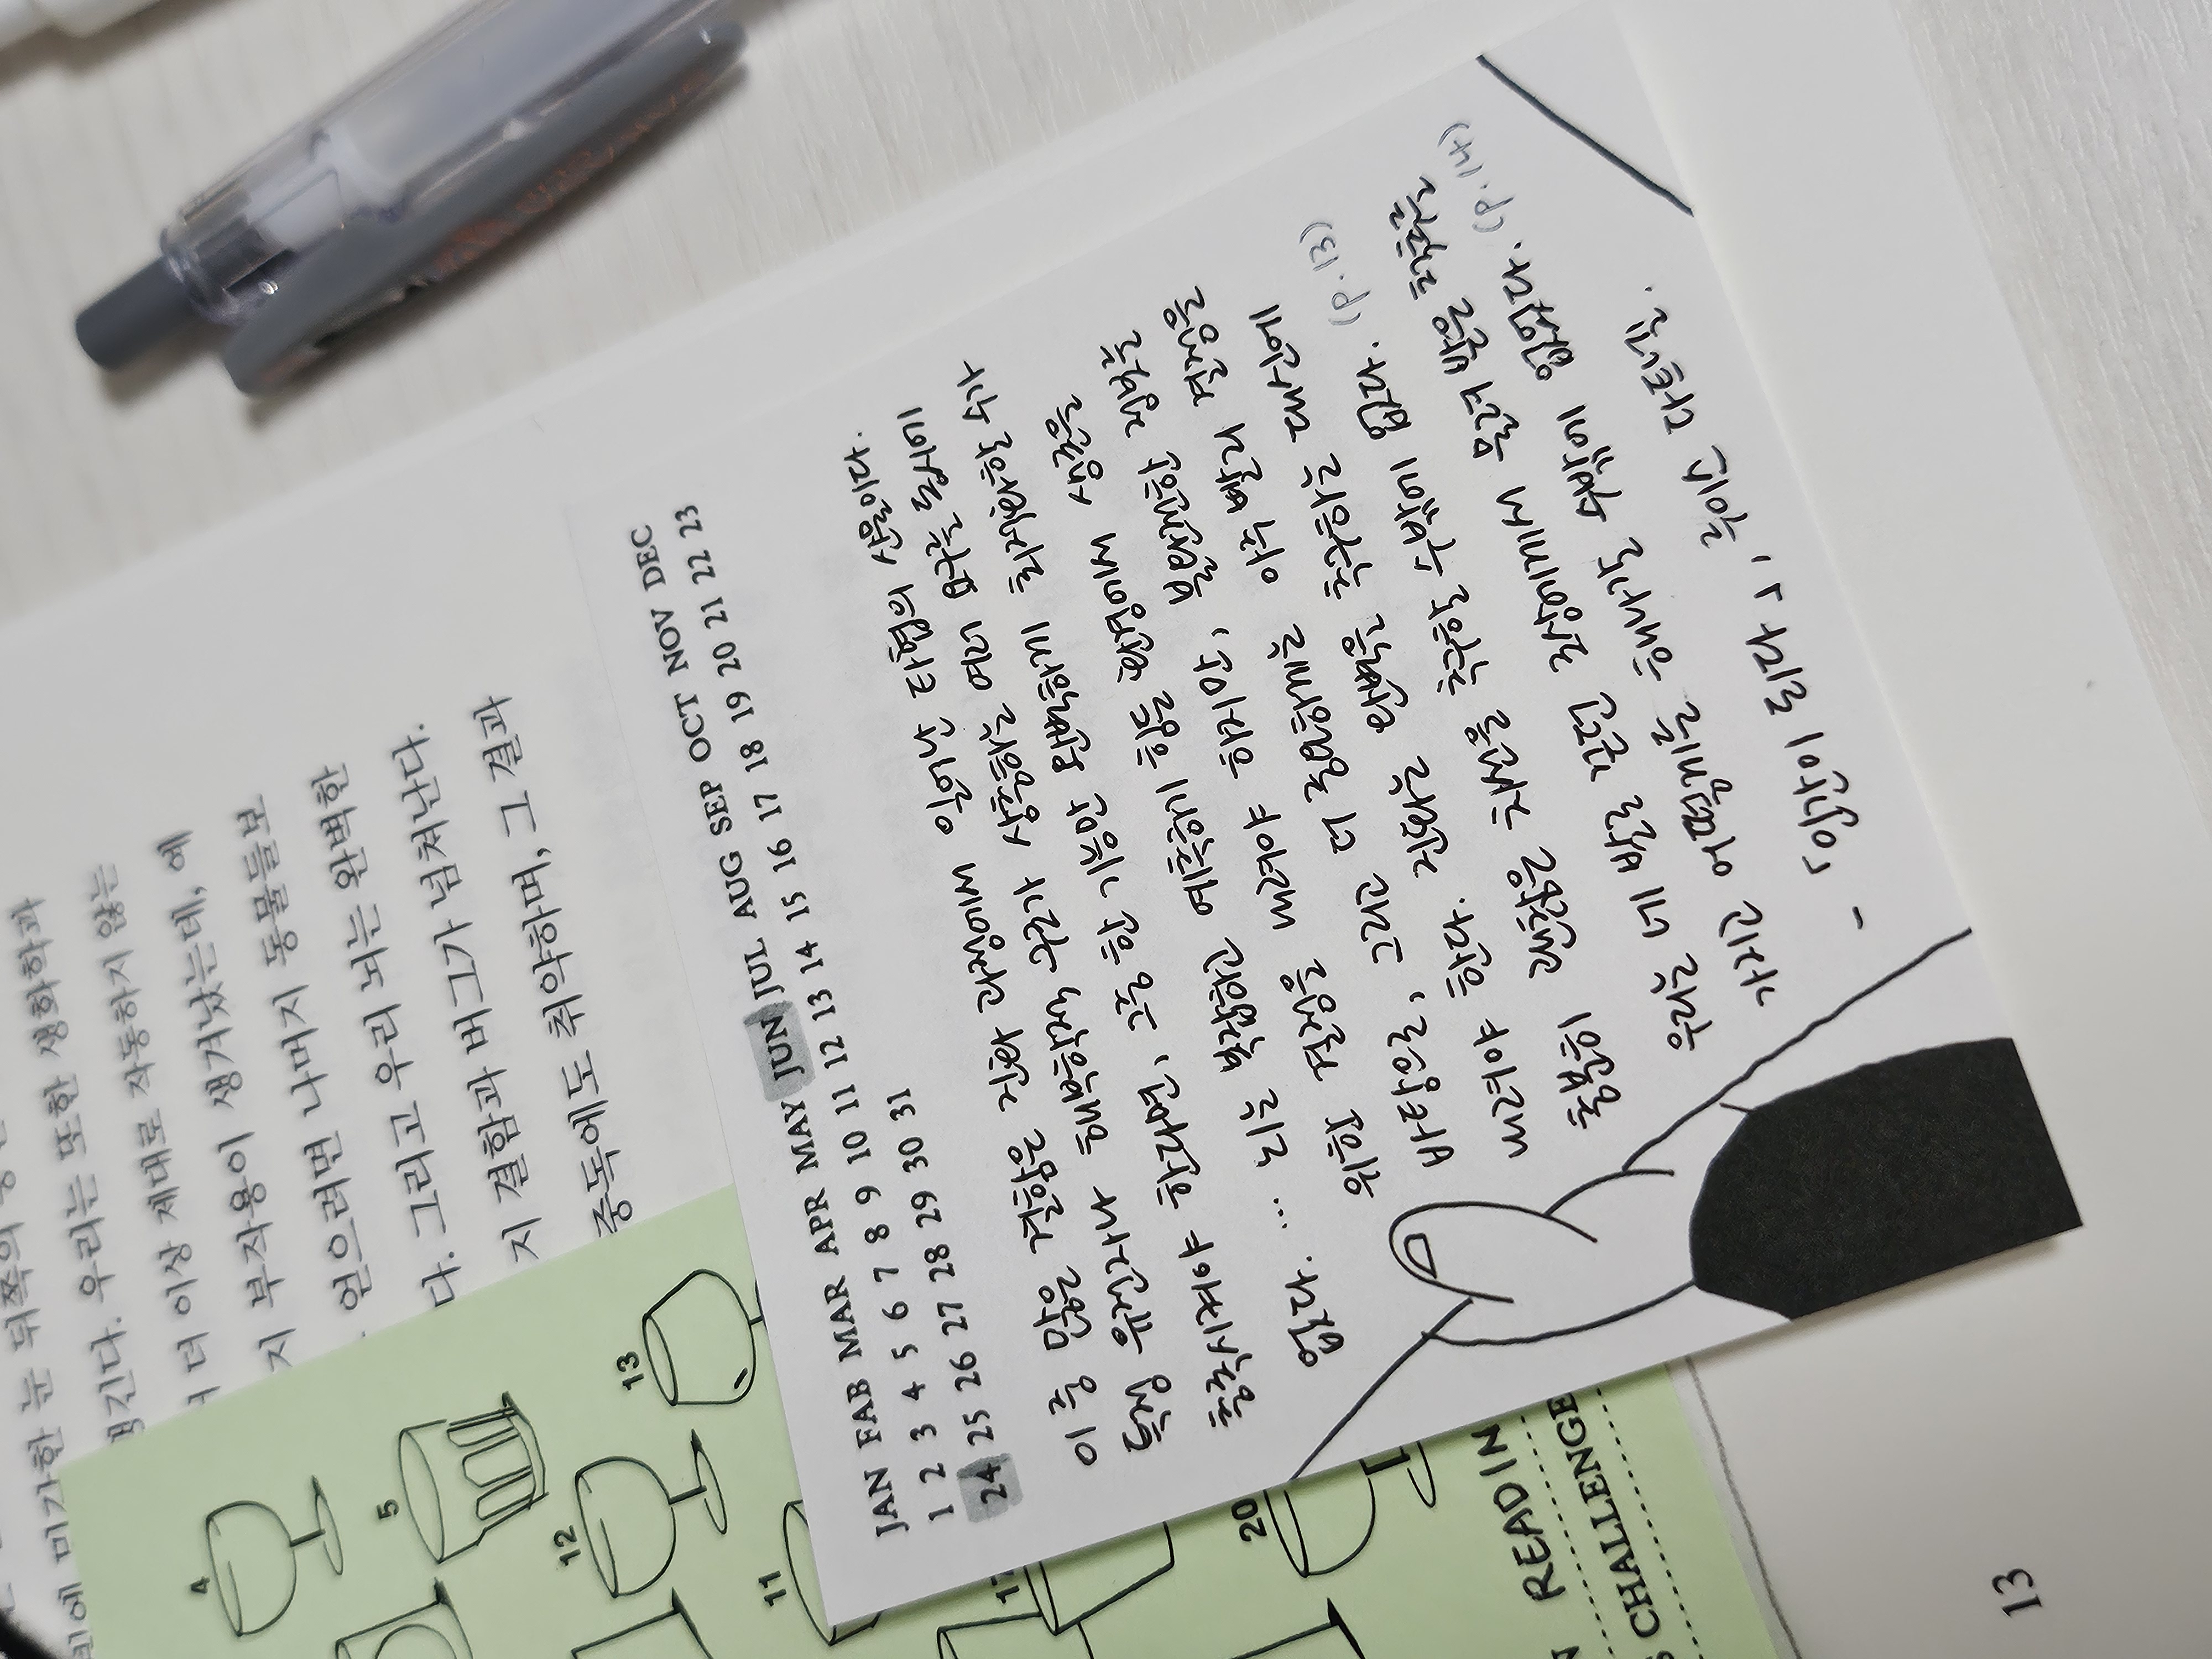 미간한 눈 뒤쪽의
생긴다. 우리는 또한 생화학과
더 이상 제대로 작동하지 않는
지 부작용이 생겨났는데, 예
얻으려면 나머지 동물들보
다. 그리고 우리 뇌는 완벽한
지 결함과 버그가 넘쳐난다.
중독에도 취약하며, 그 결과
4
5
12
13
11
17
20
READIN
CHALLENGE
JAN FAB MAR APR MAY JUN JUL AUG SEP OCT NOV DEC
1 2 3 4 5 6 7 8 9 10 11 12 13 14 15 16 17 18 19 20 21 22 23
24 25 26 27 28 29 30 31
이 중 많은 결함은 진화 과정에서 일어난 타협의 산물이다.
특정 유전자나 해부학적 구조가 상충하는 여러 요구를 동시에
충족시켜야 한다면, 그중 한 기능만 완벽하게 최적화할 수가
없다. … 뇌는 복잡하고 예측하기 힘든 환경에서 생존을
위한 결정을 내려야 하지만, 불완전한 정보를
바탕으로, 그리고 더 중요하게는 아주 빨리 결정을
내려야 한다. 진화는 완벽을 추구하는 대신에
충분히 괜찮은 차선을 추구할 수밖에 없다. (p.13)
우리는 네 발로 걷던 조상에게서 물려 받은 척추를
가지고 어떻게든 해나갈 수밖에 없었다. (p.14)
- 「인간이 되다」, 루이스 다트넬.
13